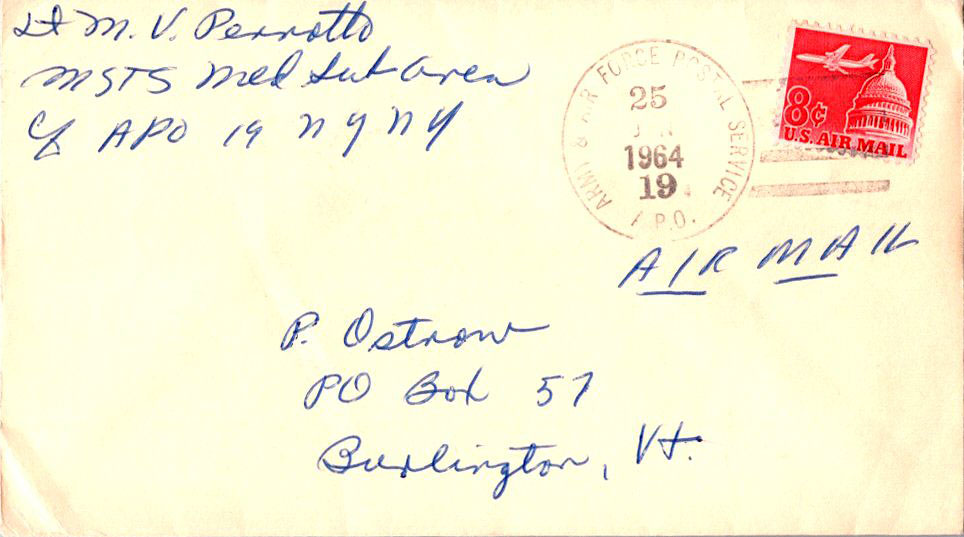 Lt M. V. Perrotto
MSTS Med Sub Area
c/o APO 19 NY NY
ARMY & AIR FORCE POSTAL SERVICE
25
1964
19
A.P.O.
8¢
U.S. AIR MAIL
AIR MAIL
P. Ostrow
PO Box 57
Burlington, Vt.